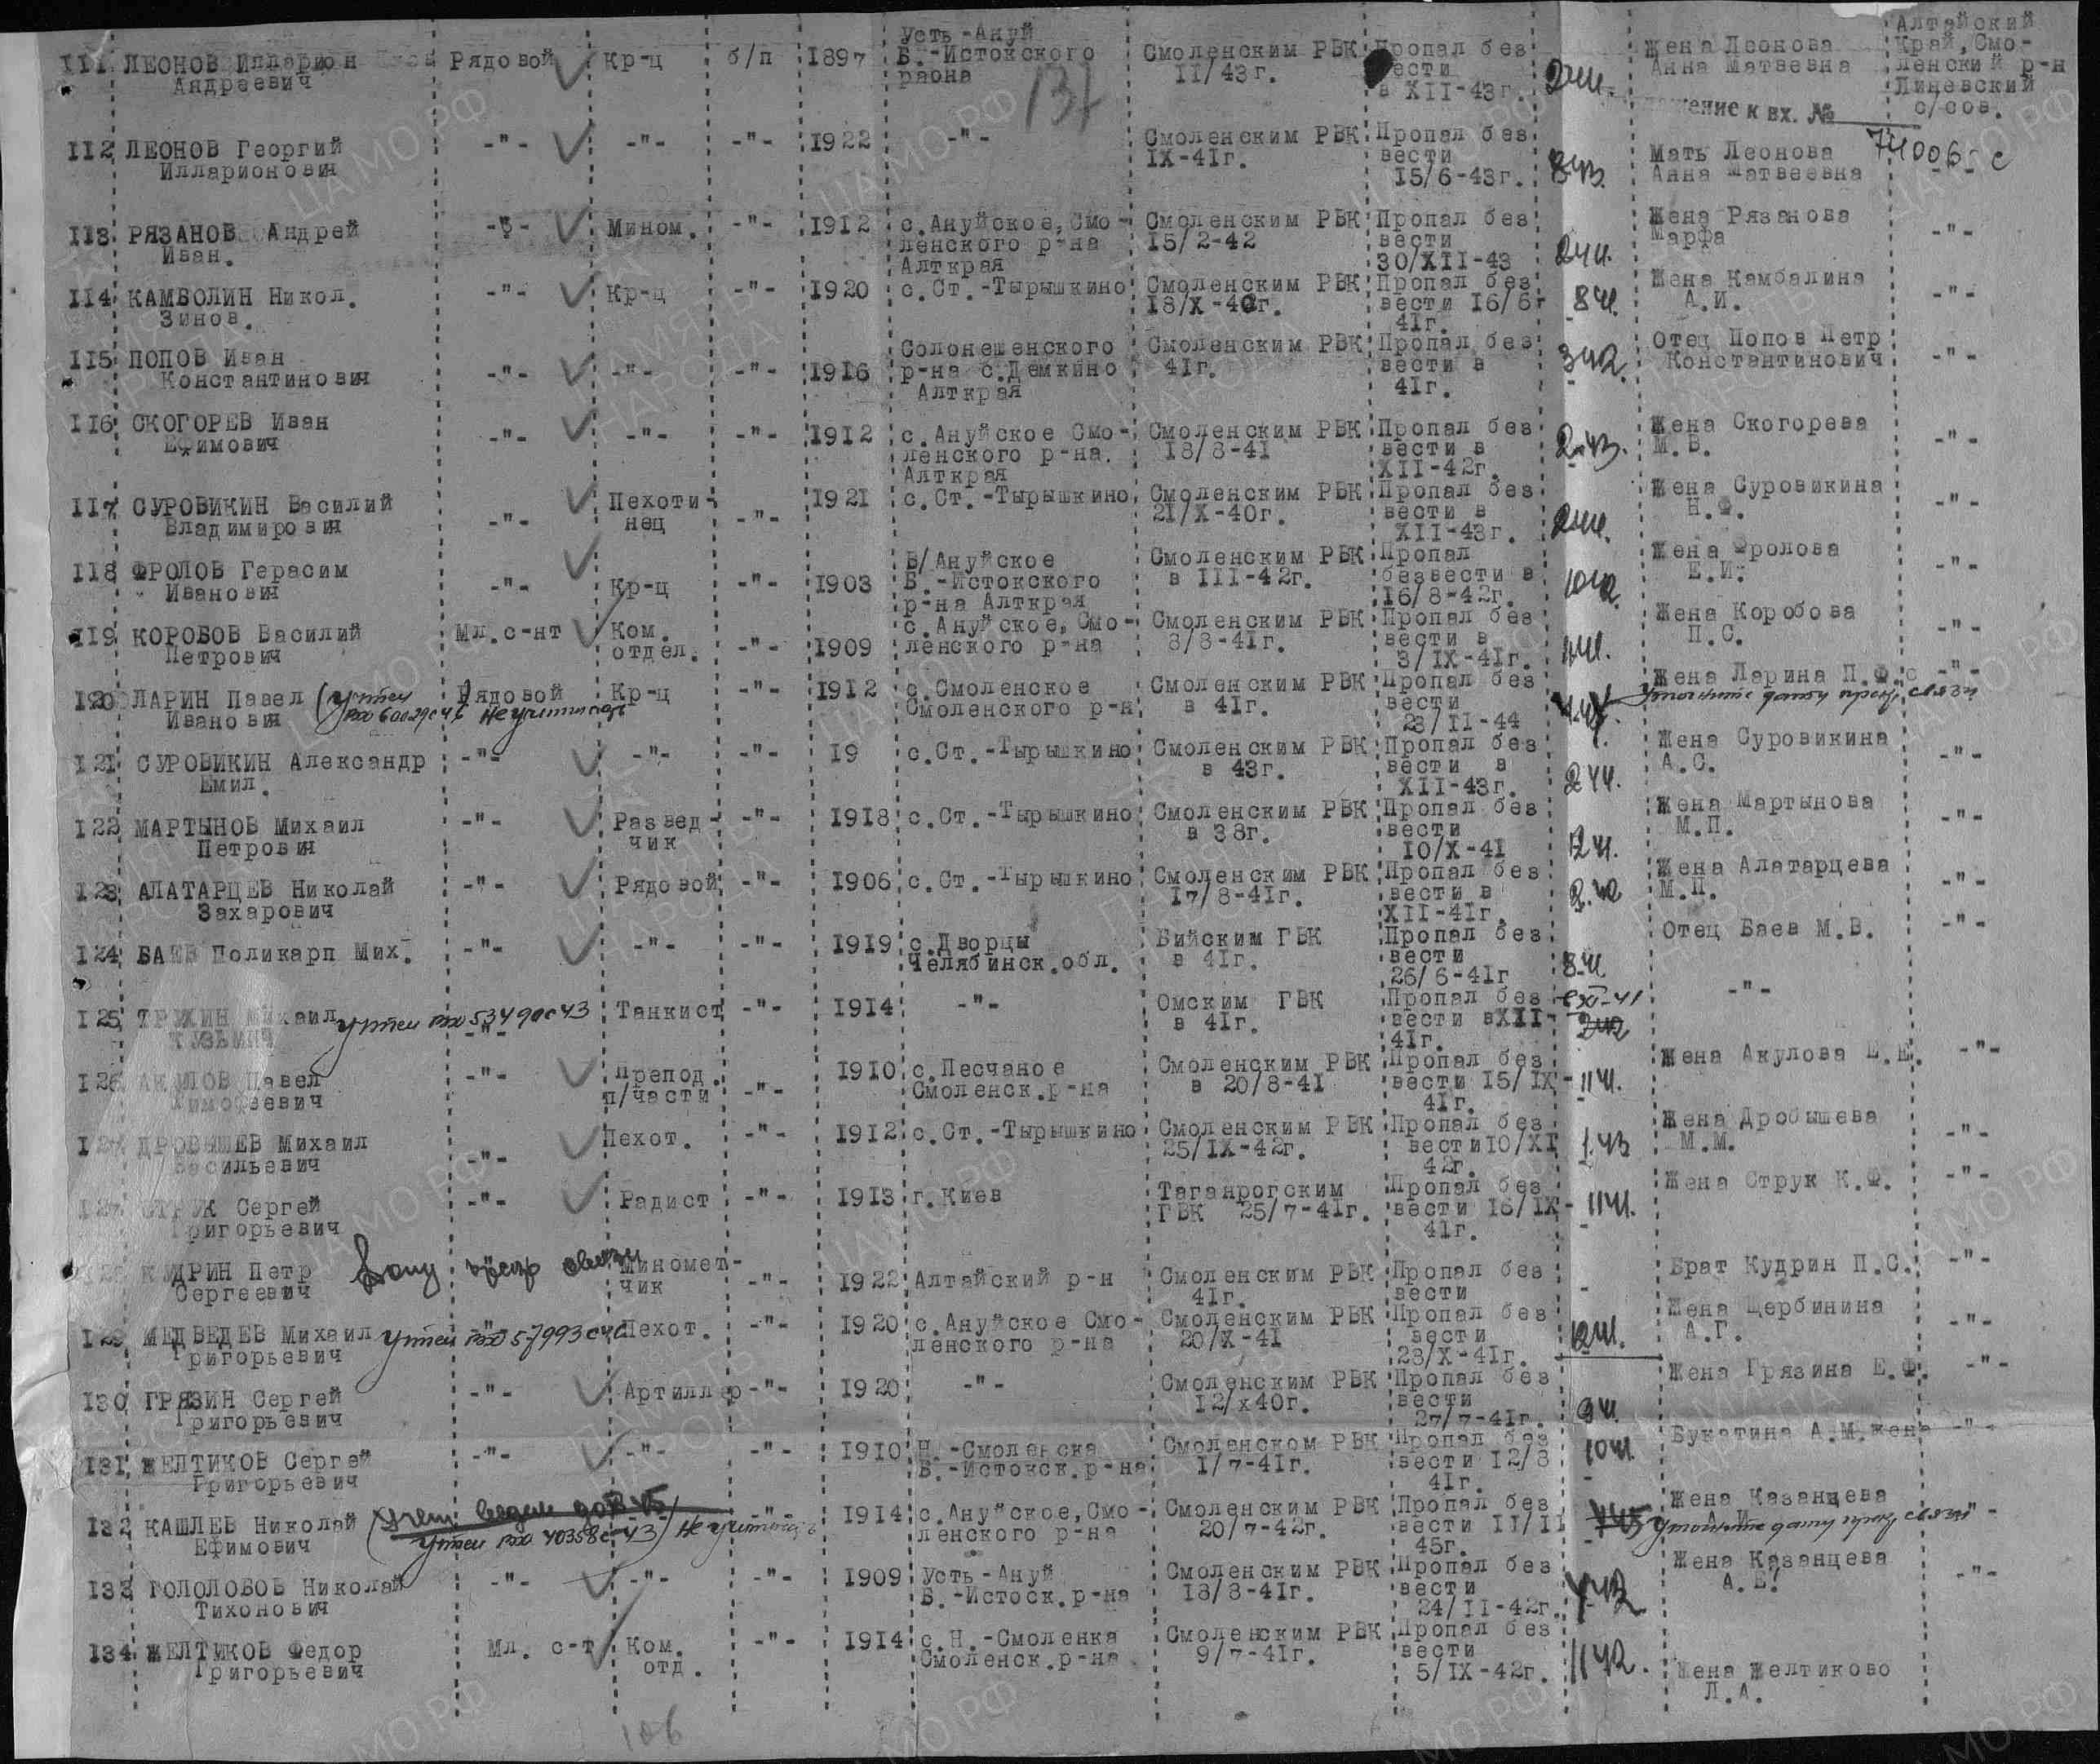 111 ЛЕОНОВ Илларион Рядовой Кр-ц б/п 1897 Усть-Ануй Смоленским РВК Пропал без Жена Леонова Алтайский
Андреевич Б.-Истокского 11/43г. вести Анна Матвевна Край, Смо-
раона в XII-43г. 2.44. ленский р-н
Линевский
137 с/сов.
к вх. №
112 ЛЕОНОВ Георгий -"- -"- -"- 1922 -"- Смоленским РВК Пропал без Мать Леонова 74006 с
Илларионович IX-41г. вести Анна Матвеевна -"-
15/6-43г. 8.43.
113 РЯЗАНОВ Андрей -"- Мином. -"- 1912 с.Ануйское, Смо- Смоленским РВК Пропал без Жена Рязанова
Иван. ленского р-на 15/2-42 вести Марфа -"-
Алткрая 30/XII-43 2.44.
114 КАМБОЛИН Никол. -"- Кр-ц -"- 1920 с.Ст.-Тырышкино Смоленским РВК Пропал без Жена Камбалина
Зинов. 18/X-40г. вести 16/6 8.41. А.И. -"-
41г.
115 ПОПОВ Иван Солонешенского Смоленским РВК Пропал без Отец Попов Петр
Константинович -"- -"- -"- 1916 р-на с.Демкино 41г. вести в 3.42. Константинович -"-
Алткрая 41г.
116 СКОГОРЕВ Иван -"- -"- -"- 1912 с.Ануйское Смо- Смоленским РВК Пропал без Жена Скогорева
Ефимович ленского р-на. 18/8-41 вести в 2.43. М.В. -"-
Алткрая XII-42г.
117 СУРОВИКИН Василий Пехоти- 1921 с.Ст.-Тырышкино Смоленским РВК Пропал без Жена Суровикина
Владимирович -"- нец -"- 21/X-40г. вести в Н.Ф. -"-
XII-43г. 2.44.
118 ФРОЛОВ Герасим В/Ануйское Смоленским РВК Пропал Жена Фролова
Иванович -"- Кр-ц -"- 1903 Б.-Истокского в III-42г. безвести в Е.И. -"-
р-на Алткрая 16/8-42г. 10.42.
119 КОРОБОВ Василий Мл.с-нт Ком. с.Ануйское, Смо- Смоленским РВК Пропал без Жена Коробова
Петрович отдел. -"- 1909 ленского р-на 8/8-41г. вести в П.С. -"-
3/IX-41г. 11.41.
120 ЛАРИН Павел (учтен Рядовой Кр-ц -"- 1912 с.Смоленское Смоленским РВК Пропал без Жена Ларина П.Ф. -"-
Иванович вх 60029с46 Не учитывать Смоленского р-н в 41г. вести Уточните дату прекр. связи
23/II-44
121 СУРОВИКИН Александр -"- -"- -"- 19 с.Ст.-Тырышкино Смоленским РВК Пропал без Жена Суровикина
Емил. в 43г. вести в А.С. -"-
XII-43г. 2.44.
122 МАРТЫНОВ Михаил -"- Развед- -"- 1918 с.Ст.-Тырышкино Смоленским РВК Пропал без Жена Мартынова
Петрович чик в 38г. вести М.П. -"-
10/X-41 12.41.
123 АЛАТАРЦЕВ Николай -"- Рядовой -"- 1906 с.Ст.-Тырышкино Смоленским РВК Пропал без Жена Алатарцева
Захарович 17/8-41г. вести в 2.42 М.П. -"-
XII-41г.
124 БАЕВ Поликарп Мих. -"- -"- -"- 1919 с.Дворцы Бийским ГВК Пропал без Отец Баев М.В. -"-
Челябинск.обл. в 41г. вести
26/6-41г 8.41.
125 ТРУХИН Михаил учтен вх 53490с43 Танкист -"- 1914 -"- Омским ГВК Пропал без XI-41 -"-
Кузьмич -"- в 41г. вести вXII- 2.42
41г.
126 АКУЛОВ Павел -"- Препод. 1910 с.Песчаное Смоленским РВК Пропал без Жена Акулова Е.Е. -"-
Тимофеевич п/части -"- Смоленск.р-на в 20/8-41 вести 15/IX- 11.41.
41г.
127 ДРОБЫШЕВ Михаил Пехот. -"- 1912 с.Ст.-Тырышкино Смоленским РВК Пропал без Жена Дробышева
Васильевич -"- 25/IX-42г. вести10/XI 1.43 М.М. -"-
42г.
СТРУК Сергей -"- Радист -"- 1913 г.Киев Таганрогским Пропал без Жена Струк К.Ф. -"-
Григорьевич ГВК 25/7-41г. вести 16/IX- 11.41.
41г.
КУДРИН Петр Дату прекр связи Миномет- Смоленским РВК Пропал без Брат Кудрин П.С. -"-
Сергеевич чик -"- 1922 Алтайский р-н 41г. вести -
129 МЕДВЕДЕВ Михаил учтен вх 57993с46 Пехот. -"- 1920 с.Ануйское Смо- Смоленским РВК Пропал без Жена Щербинина
Григорьевич ленского р-на 20/X-41 вести А.Г. -"-
23/X-41г. 12.41.
130 ГРЯЗИН Сергей -"- Артиллер -"- 1920 -"- Смоленским РВК Пропал без Жена Грязина Е.Ф. -"-
Григорьевич 12/х40г. вести
27/7-41г. 9.41.
131 ЖЕЛТИКОВ Сергей -"- -"- -"- 1910 Н.-Смоленска Смоленском РВК Пропал без Букатина А.М.жена -"-
Григорьевич Б.-Истокск.р-на 1/7-41г. вести 12/8 10.41.
41г.
132 КАШЛЕВ Николай -"- 1914 с.Ануйское, Смо- Смоленским РВК Пропал без Жена Казанцева
Ефимович (учтен вх 40358с-43) Не учитывать ленского р-на 20/7-42г. вести 11/II А.И. -"-
45г. Уточните дату прекр связи
133 ГОЛОЛОБОВ Николай -"- -"- -"- 1909 Усть-Ануй Смоленским РВК Пропал без Жена Казанцева
Тихонович Б.-Истоск.р-на 18/8-41г. вести А.Е. -"-
24/II-42г.
134 ЖЕЛТИКОВ Федор Мл. с-т Ком. -"- 1914 с.Н.-Смоленка Смоленским РВК Пропал без
Григорьевич отд. Смоленск.р-на 9/7-41г. вести
5/IX-42г. 11.42. Жена Желтиково
Л.А.
106